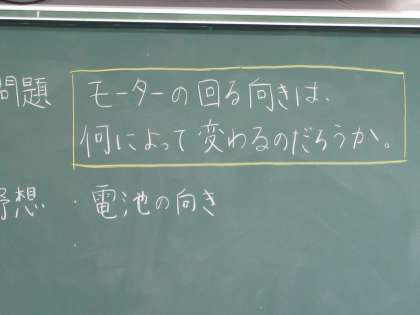 問題 モーターの回る向きは、
何によって変わるのだろうか。
予想 ・電池の向き
・